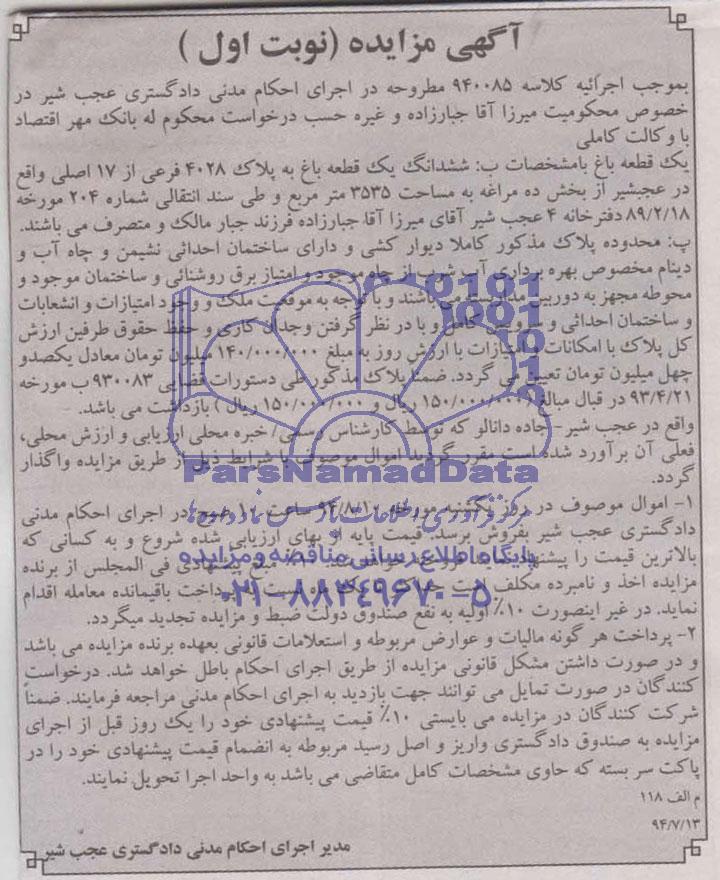 آگهی مزایده (نوبت اول )
بموجب اجرائیه کلاسه ۹۴۰۰۸۵ مطروحه در اجرای احکام مدنی دادگستری عجب شیر در
خصوص محکومیت میرزا آقا جبارزاده و غیره حسب درخواست محکوم له بانک مهر اقتصاد
با وکالت کاملی
یک قطعه باغ بامشخصات ب: ششدانگ یک قطعه باغ به پلاک ۴۰۲۸ فرعی از ۱۷ اصلی واقع
در عجبشیر از بخش ده مراغه به مساحت ۳۵۳۵ متر مربع و طی سند انتقالی شماره ۲۰۴ مورخه
۸۹/۲/۱۸ دفترخانه ۴ عجب شیر آقای میرزا آقا جبارزاده فرزند جبار مالک و متصرف می باشند.
پ: محدوده پلاک مذکور کاملا دیوار کشی و دارای ساختمان احداثی نشیمن و چاه آب و
دینام مخصوص بهره برداری آب شرب از چاه موجود و امتیاز برق روشنائی و ساختمان موجود و
محوطه مجهز به دوربین مداربسته می باشند و با توجه به موقعیت ملک و وجود امتیازات و انشعابات
و ساختمان احداثی و سرویس کامل و با در نظر گرفتن وجدان کاری و حفظ حقوق طرفین ارزش
کل پلاک با امکانات و امتیازات با ارزش روز به مبلغ ۱۴۰/۰۰۰/۰۰۰ میلیون تومان معادل یکصدو
چهل میلیون تومان تعیین می گردد. ضمنا پلاک مذکور طی دستورات قضایی ۹۳۰۰۸۳ ب مورخه
۹۳/۴/۲۱ در قبال مبالغ (۱۵۰/۰۰۰/۰۰۰ ریال و ۱۵۰/۰۰۰/۰۰۰ ریال ) بازداشت می باشد.
واقع در عجب شیر - جاده دانالو که توسط کارشناس رسمی/ خبره محلی ارزیابی و ارزش محلی،
فعلی آن برآورد شده است مقرر گردید اموال موصوف با شرایط ذیل از طریق مزایده واگذار
گردد.
۱- اموال موصوف در روز یکشنبه مورخه ۹۴/۸/۱۰ ساعت ۱۰ صبح در اجرای احکام مدنی
دادگستری عجب شیر بفروش برسد. قیمت پایه از بهای ارزیابی شده شروع و به کسانی که
بالاترین قیمت را پیشنهاد نمایند فروخته خواهد شد ۱۰٪ مبلغ پیشنهادی فی المجلس از برنده
مزایده اخذ و نامبرده مکلف است حداکثر یک ماه نسبت به پرداخت باقیمانده معامله اقدام
نماید. در غیر اینصورت ۱۰٪ اولیه به نفع صندوق دولت ضبط و مزایده تجدید میگردد.
۲- پرداخت هر گونه مالیات و عوارض مربوطه و استعلامات قانونی بعهده برنده مزایده می باشد
و در صورت داشتن مشکل قانونی مزایده از طریق اجرای احکام باطل خواهد شد. درخواست
کنندگان در صورت تمایل می توانند جهت بازدید به اجرای احکام مدنی مراجعه فرمایند. ضمناً
شرکت کنندگان در مزایده می بایستی ۱۰٪ قیمت پیشنهادی خود را یک روز قبل از اجرای
مزایده به صندوق دادگستری واریز و اصل رسید مربوطه به انضمام قیمت پیشنهادی خود را در
پاکت سر بسته که حاوی مشخصات کامل متقاضی می باشد به واحد اجرا تحویل نمایند.
م الف ۱۱۸
۹۴/۷/۱۳
مدیر اجرای احکام مدنی دادگستری عجب شیر
ParsNamadData
مرکز فرآوری اطلاعات پارس نماد داده ها
پایگاه اطلاع رسانی مناقصه و مزایده
۰۲۱-۸۸۳۴۹۶۷۰-۵